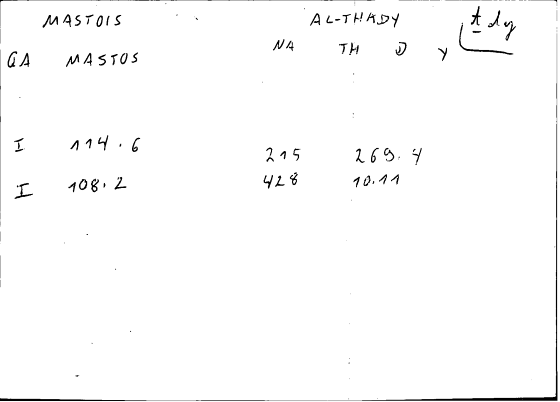 MASTOIS AL-THADY ṯdy
GA MASTOS NA TH D Y
I 114.6 215 269.4
I 108.2 428 10.11